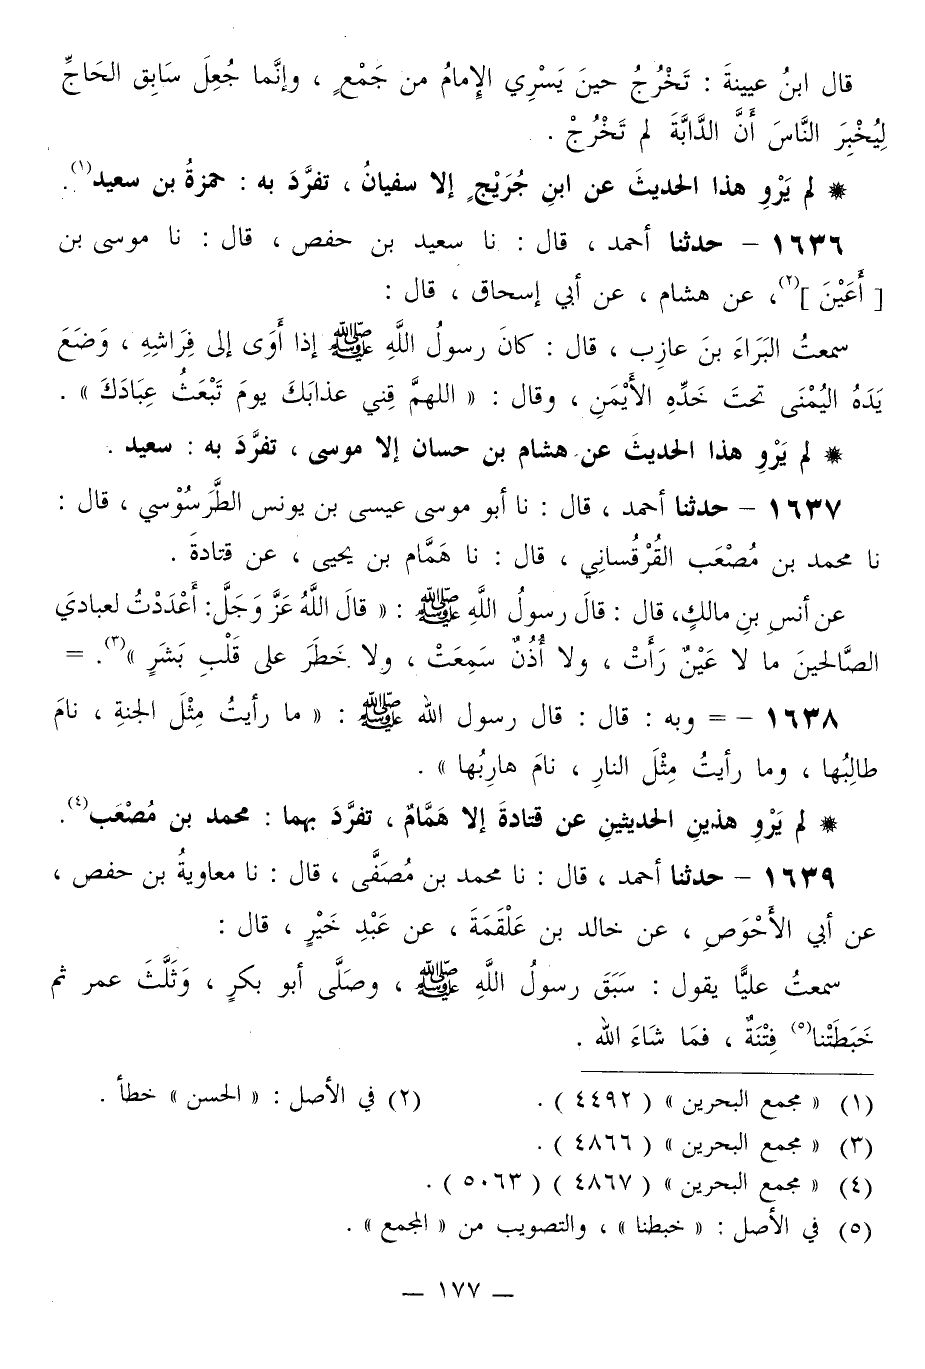 قال ابنُ عيينةَ : تَخْرُجُ حينَ يَسْرِي الإِمامُ من جَمْعٍ ، وإنَّما جُعِلَ سَابِق الحَاجِّ
لِيُخْبِرَ النَّاسَ أَنَّ الدَّابَّةَ لم تَخْرُجْ .
* لم يَرْوِ هذا الحديثَ عن ابنِ جُرَيْجٍ إلا سفيانُ ، تفرَّدَ به : حمزةُ بن سعيد(١).
١٦٣٦ - حدثنا أحمد ، قال : نا سعيد بن حفص ، قال : نا موسى بن
[ أَعْيَنَ ](٢)، عن هشام ، عن أبي إسحاق ، قال :
سمعتُ البَرَاءَ بنَ عازِب ، قال : كانَ رسولُ اللَّهِ ﷺ إذا أَوَى إلى فِرَاشِهِ ، وَضَعَ
يَدَهُ اليُمْنَى تحتَ خَدِّهِ الأَيْمَنِ ، وقال : « اللهمَّ قِني عذابَكَ يومَ تَبْعَثُ عِبَادَكَ » .
* لم يَرْوِ هذا الحديثَ عن هشام بن حسان إلا موسى ، تفرَّدَ به : سعيد .
١٦٣٧ - حدثنا أحمد ، قال : نا أبو موسى عيسى بن يونس الطَّرَسُوْسي ، قال :
نا محمد بن مُصْعَب القُرْقُساني ، قال : نا هَمَّام بن يحيى ، عن قتادةَ .
عن أنسِ بنِ مالكٍ، قال : قالَ رسولُ اللَّهِ ﷺ : « قالَ اللَّهُ عَزَّ وَجَلَّ: أَعْدَدْتُ لعبادي
الصَّالحينَ ما لا عَيْنٌ رَأَتْ ، ولا أُذُنٌ سَمِعَتْ ، ولا خَطَرَ على قَلْبِ بَشَرٍ »(٣). =
١٦٣٨ - = وبه : قال : قال رسول الله ﷺ : « ما رأيتُ مِثْلَ الجنةِ ، نامَ
طالِبُها ، وما رأيتُ مِثْلَ النارِ ، نامَ هارِبُها » .
* لم يَرْوِ هذينِ الحديثينِ عن قتادةَ إلا هَمَّامٌ ، تفرَّدَ بهما : محمد بن مُصْعَب(٤).
١٦٣٩ - حدثنا أحمد ، قال : نا محمد بن مُصَفَّى ، قال : نا معاويةُ بن حفص ،
عن أبي الأَحْوَصِ ، عن خالد بن عَلْقَمَةَ ، عن عَبْدِ خَيْرٍ ، قال :
سمعتُ عليًّا يقول : سَبَقَ رسولُ اللَّهِ ﷺ ، وصَلَّى أبو بكرٍ ، وَثَلَّثَ عمر ثم
خَبَطَتْنا(٥) فِتْنَةٌ ، فمَا شَاءَ الله .
(١) « مجمع البحرين » ( ٤٤٩٢ ) . (٢) في الأصل : « الحسن » خطأ .
(٣) « مجمع البحرين » ( ٤٨٦٦ ) .
(٤) « مجمع البحرين » ( ٤٨٦٧ ) ( ٥٠٦٣ ) .
(٥) في الأصل : « خبطنا » ، والتصويب من « المجمع » .
— ١٧٧ —